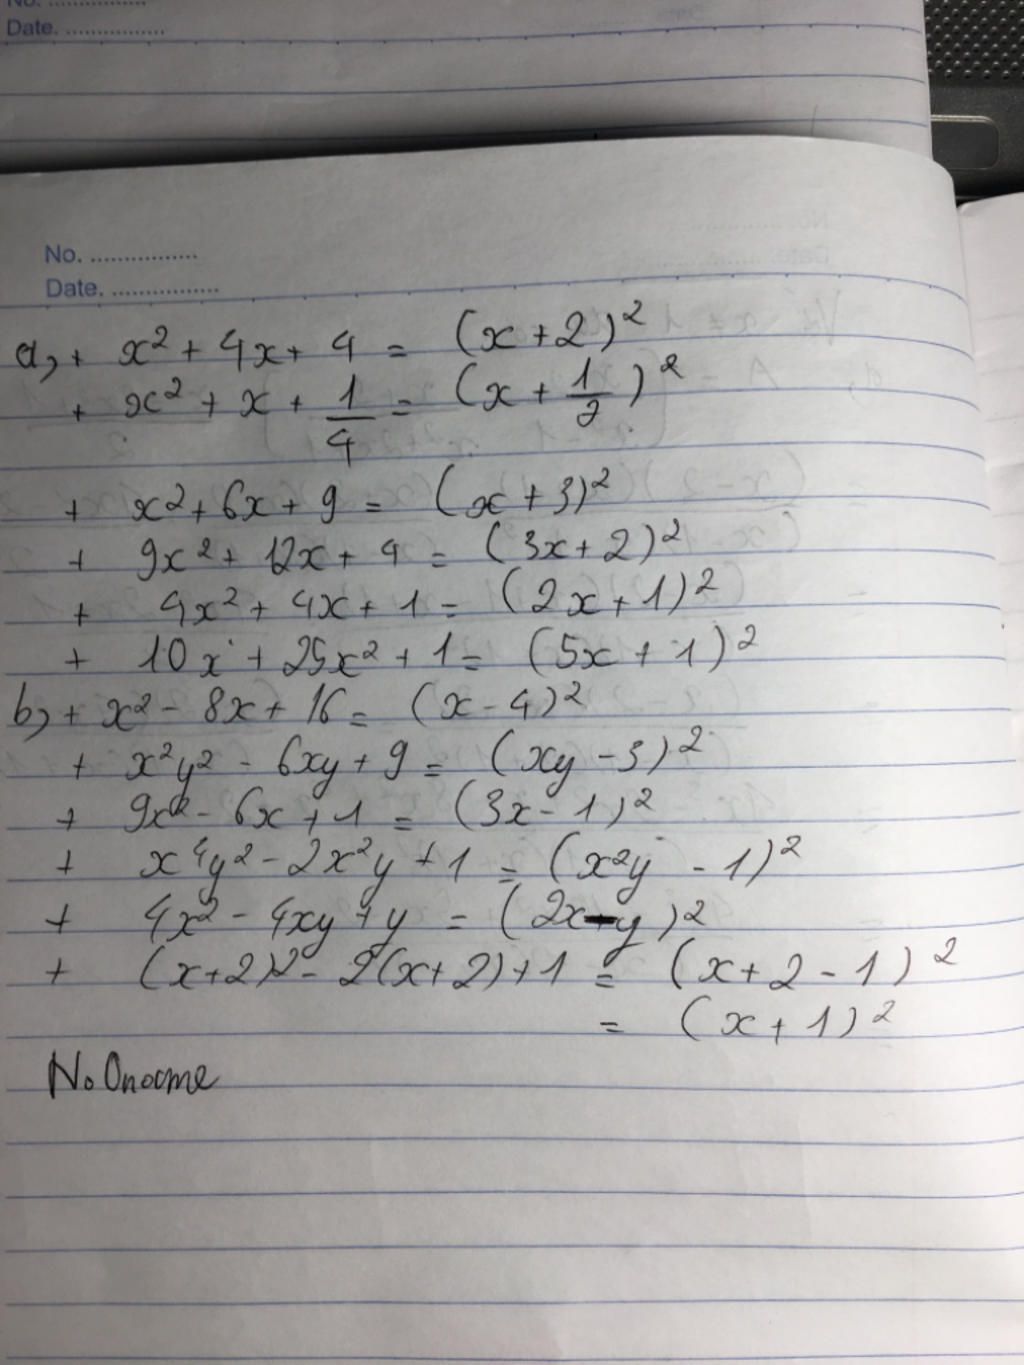 No. ................
Date. ................
No. ................
Date. ................
a, + x² + 4x + 4 = (x + 2)²
+ x² + x + 1/4 = (x + 1/2)²
+ x² + 6x + 9 = (x + 3)²
+ 9x² + 12x + 4 = (3x + 2)²
+ 4x² + 4x + 1 = (2x + 1)²
+ 10x + 25x² + 1 = (5x + 1)²
b, + x² - 8x + 16 = (x - 4)²
+ x²y² - 6xy + 9 = (xy - 3)²
+ 9x² - 6x + 1 = (3x - 1)²
+ x⁴y² - 2x²y + 1 = (x²y - 1)²
+ 4x² - 4xy + y = (2x - y)²
+ (x+2)² - 2(x+2) + 1 = (x + 2 - 1)²
= (x + 1)²